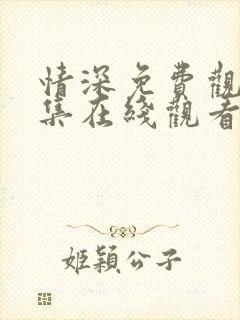 情深免費觀
集在綫觀看
姬穎公子